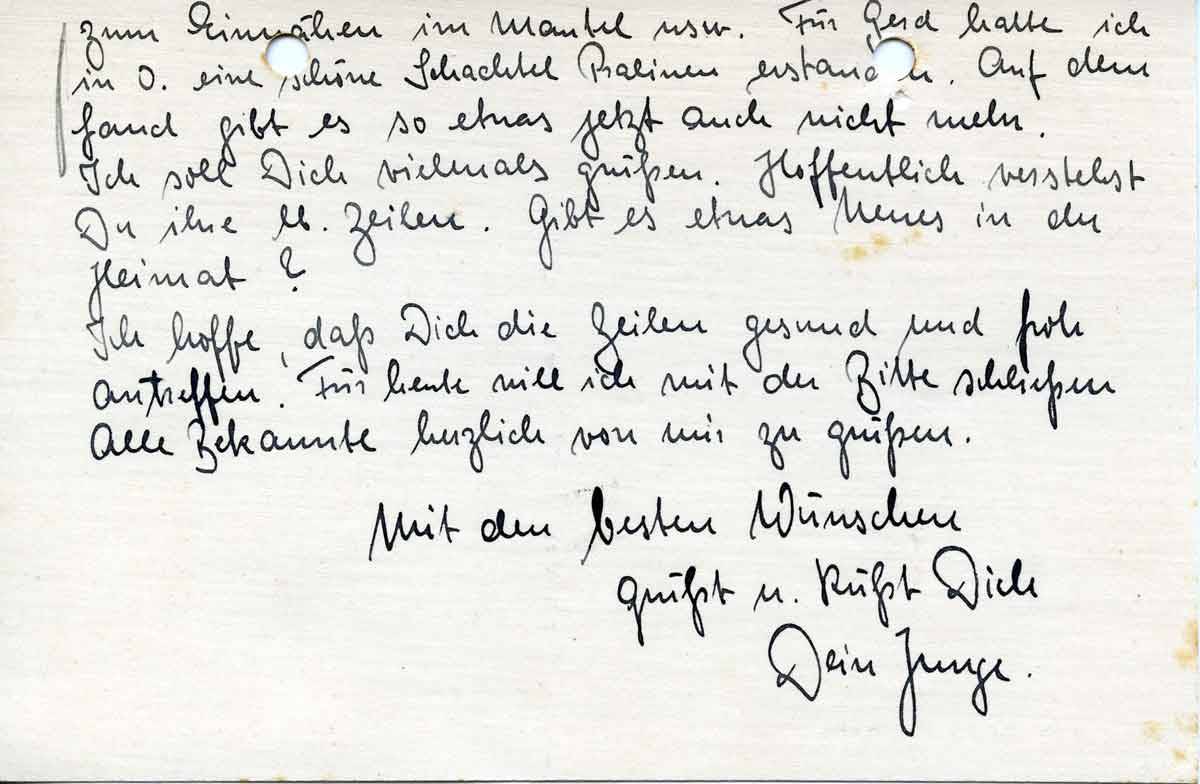 zum Einnähen im Mantel usw. Für Gerd hatte ich
in O. eine schöne Schachtel Pralinen erstanden. Auf dem
Land gibt es so etwas jetzt auch nicht mehr.
Ich soll Dich vielmals grüßen. Hoffentlich verstehst
Du ihre lb. Zeilen. Gibt es etwas Neues in der
Heimat?
Ich hoffe, daß Dich die Zeilen gesund und froh
antreffen. Für heute will ich mit der Bitte schließen
Alle Bekannte herzlich von mir zu grüßen.
Mit den besten Wünschen
grüßt u. küßt Dich
Dein Junge.